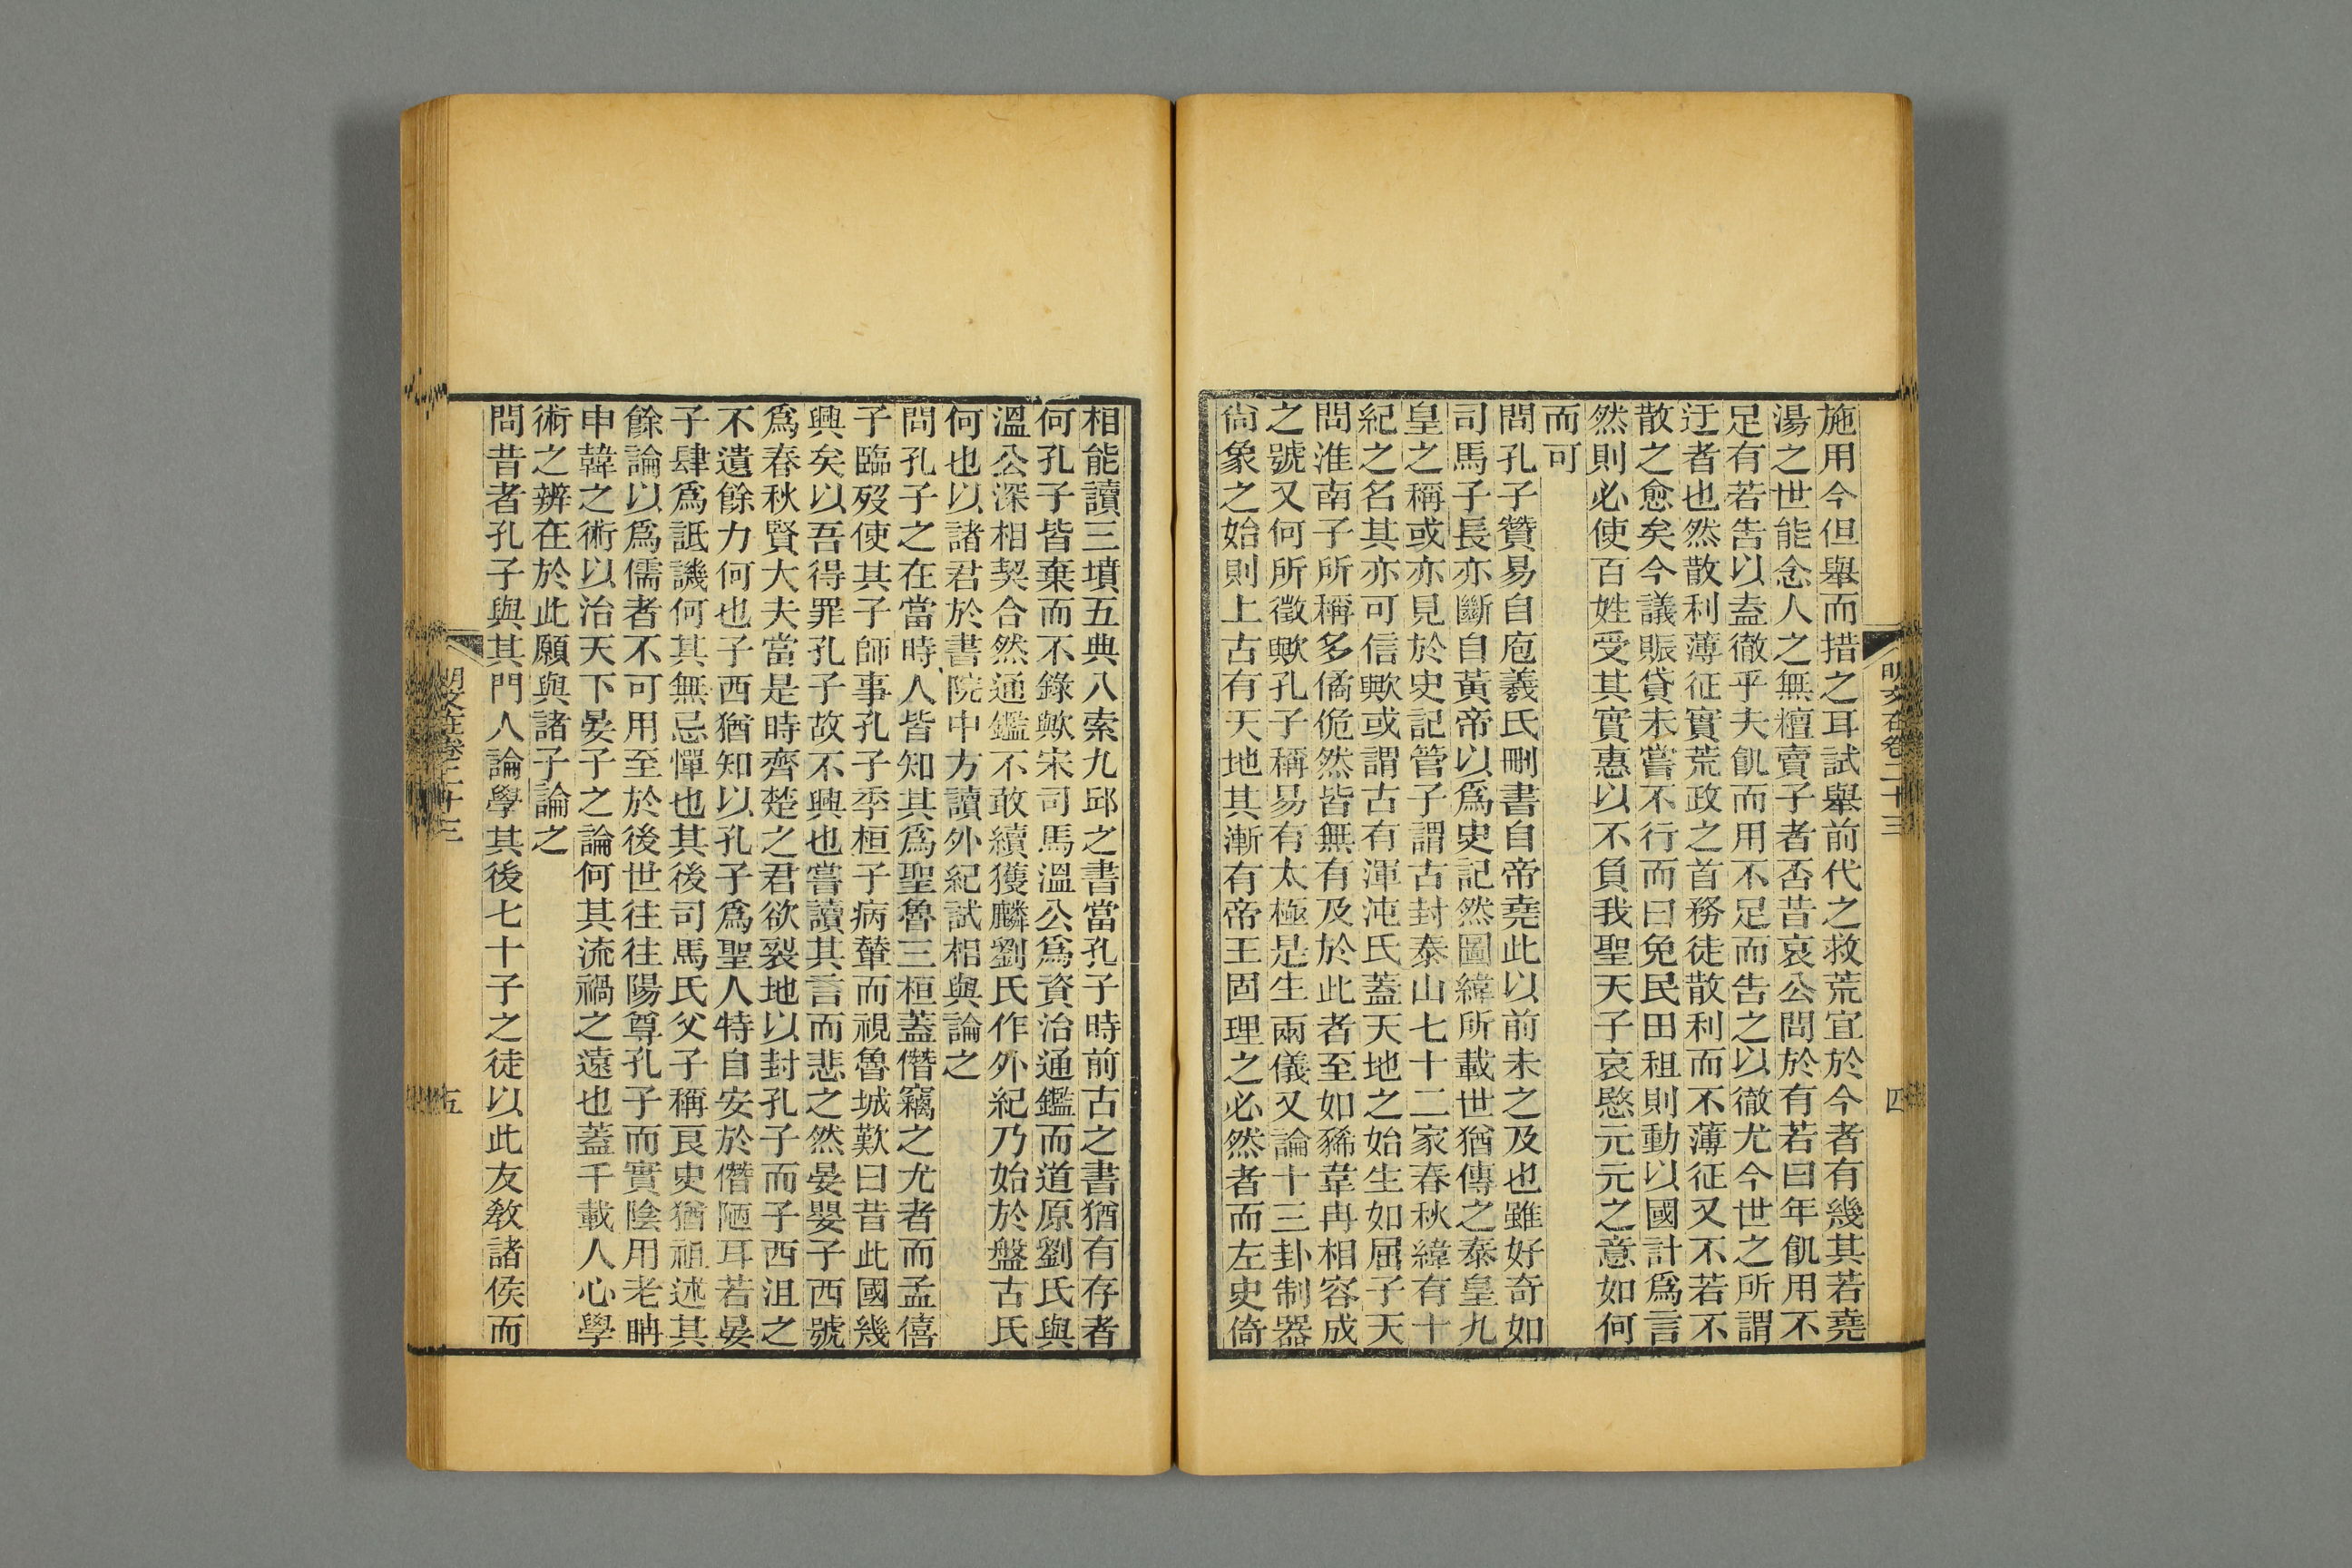 明文在卷二十三
四
施用今但舉而措之耳試舉前代之救荒宜於今者有幾其若堯
湯之世能念人之無𥼷賣子者否昔哀公問於有若曰年飢用不
足有若告以盍徹乎夫飢而用不足而告之以徹尤今世之所謂
迂者也然散利薄征實荒政之首務徒散利而不薄征又不若不
散之愈矣今議賑貸未嘗不行而曰免民田租則動以國計爲言
然則必使百姓受其實惠以不負我聖天子哀愍元元之意如何
而可
問孔子贊易自庖羲氏刪書自帝堯此以前未之及也雖好奇如
司馬子長亦斷自黃帝以爲史記然圖緯所載世猶傳之泰皇九
皇之稱或亦見於史記管子謂古封泰山七十二家春秋緯有十
紀之名其亦可信歟或謂古有渾沌氏蓋天地之始生如屈子天
問淮南子所稱多僪佹然皆無有及於此者至如豨韋冉相容成
之號又何所徵歟孔子稱易有太極是生兩儀又論十三卦制器
尙象之始則上古有天地其漸有帝王固理之必然者而左史倚
相能讀三墳五典八索九邱之書當孔子時前古之書猶有存者
何孔子皆棄而不錄歟宋司馬溫公爲資治通鑑而道原劉氏與
溫公深相契合然通鑑不敢續獲麟劉氏作外紀乃始於盤古氏
何也以諸君於書院中方讀外紀試相與論之
問孔子之在當時人皆知其爲聖魯三桓蓋僭竊之尤者而孟僖
子臨歿使其子師事孔子季桓子病輦而視魯城歎曰昔此國幾
興矣以吾得罪孔子故不興也嘗讀其言而悲之然晏嬰子西號
爲春秋賢大夫當是時齊楚之君欲裂地以封孔子而子西沮之
不遺餘力何也子西猶知以孔子爲聖人特自安於僭陋耳若晏
子肆爲詆譏何其無忌憚也其後司馬氏父子稱良史猶祖述其
餘論以爲儒者不可用至於後世往往陽尊孔子而實陰用老聃
申韓之術以治天下晏子之論何其流禍之遠也蓋千載人心學
術之辨在於此願與諸子論之
問昔者孔子與其門人論學其後七十子之徒以此友敎諸侯而
明文在卷二十三
五